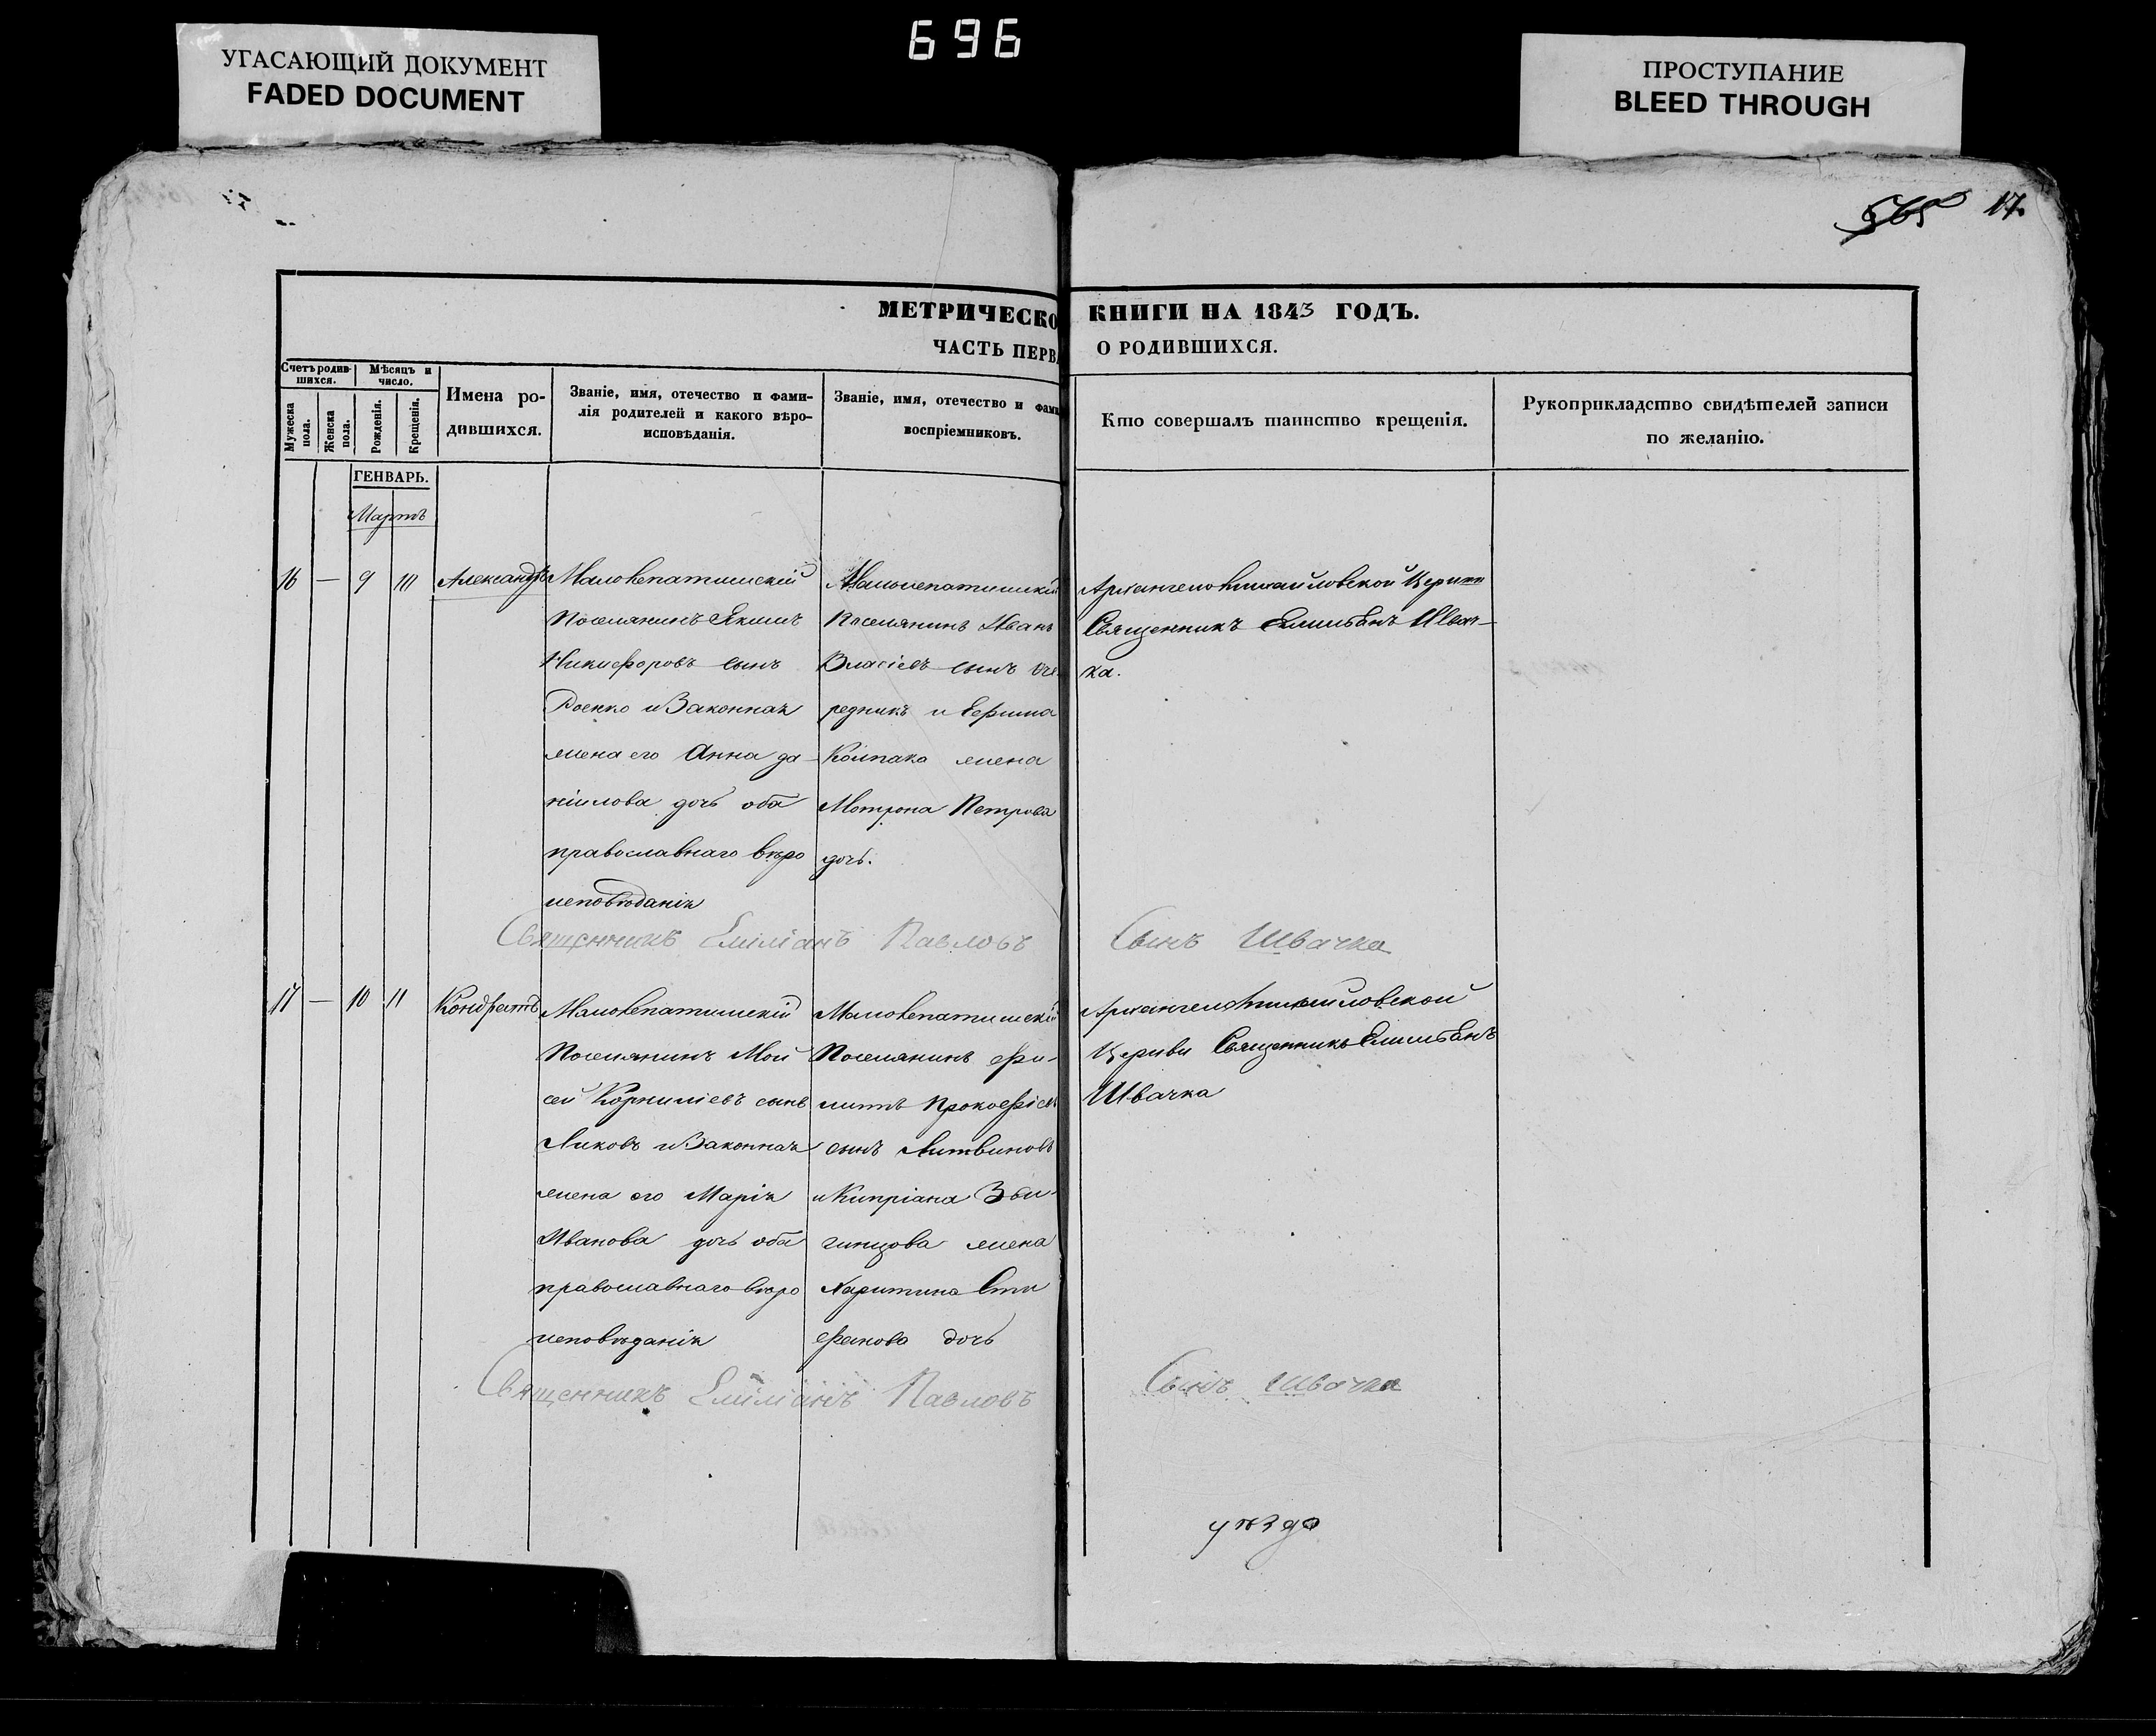 696
УГАСАЮЩИЙ ДОКУМЕНТ
FADED DOCUMENT
ПРОСТУПАНИЕ
BLEED THROUGH
565 17.
МЕТРИЧЕСКО КНИГИ НА 1843 ГОДЪ.
ЧАСТЬ ПЕРВ О РОДИВШИХСЯ.
Счетъ родив-
шихся.
Мѣсяцъ и
число.
Мужеска
пола.
Женска
пола.
Рожденія.
Крещенія.
Имена ро-
дившихся.
Званіе, имя, отечество и фами-
лія родителей и какого вѣро-
исповѣданія.
Званіе, имя, отечество и фами
воспріемниковъ.
Кто совершалъ таинство крещенія.
Рукоприкладство свидѣтелей записи
по желанію.
ГЕНВАРЬ.
Мартъ
16 — 9 10 Александръ
Поселянинъ Якимъ
Никифоровъ сынъ
и Законная
жена его Анна да-
ніилова дочь оба
православнаго вѣро
исповѣданія
Поселянинъ Иванъ
Власіевъ сынъ Оче-
редникъ и Ефима
Колпака жена
Мотрона Петрова
дочь.
Архангеломихайловской Церкви
Священникъ Емиліанъ Швач-
ка.
Священникъ Емиліанъ Павловъ Сынъ Швачка
17 — 10 11 Кондратъ
Поселянинъ Мой
сей Корниліевъ сынъ
Ликовъ и Законная
жена его Марія
Иванова дочь оба
православнаго вѣро
исповѣданія
Поселянинъ Фи-
липъ Прокофіевъ
сынъ Литвиновъ
и Кипріана Зви-
гинцова жена
Харитина Сте
фанова дочь
Архангеломихайловской
Церкви Священникъ Емиліанъ
Швачка
Священникъ Емиліанъ Павловъ Сынъ Швачка
уѣзда